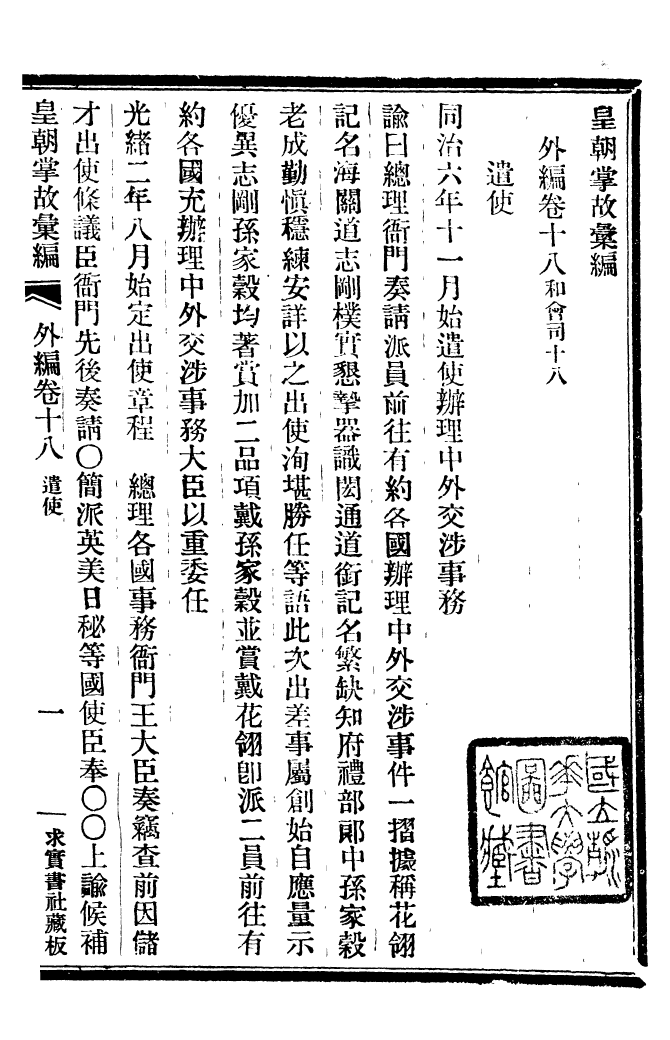 皇朝掌故彙編
外編卷十八和會司十八
遣使
同治六年十一月始遣使辦理中外交涉事務
諭曰總理衙門奏請派員前往有約各國辦理中外交涉事件一摺據稱花翎
記名海關道志剛樸實懇摯器識閎通道銜記名繁缺知府禮部郞中孫家穀
老成勤愼穩練安詳以之出使洵堪勝任等語此次出差事屬創始自應量示
優異志剛孫家穀均著賞加二品項戴孫家穀並賞戴花翎卽派二員前往有
約各國充辦理中外交涉事務大臣以重委任
光緒二年八月始定出使章程 總理各國事務衙門王大臣奏竊查前因儲
才出使條議臣衙門先後奏請〇簡派英美日秘等國使臣奉〇〇上諭候補
皇朝掌故彙編 外編卷十八 遣使 一 求實書社藏板
國立清華大學圖書館藏